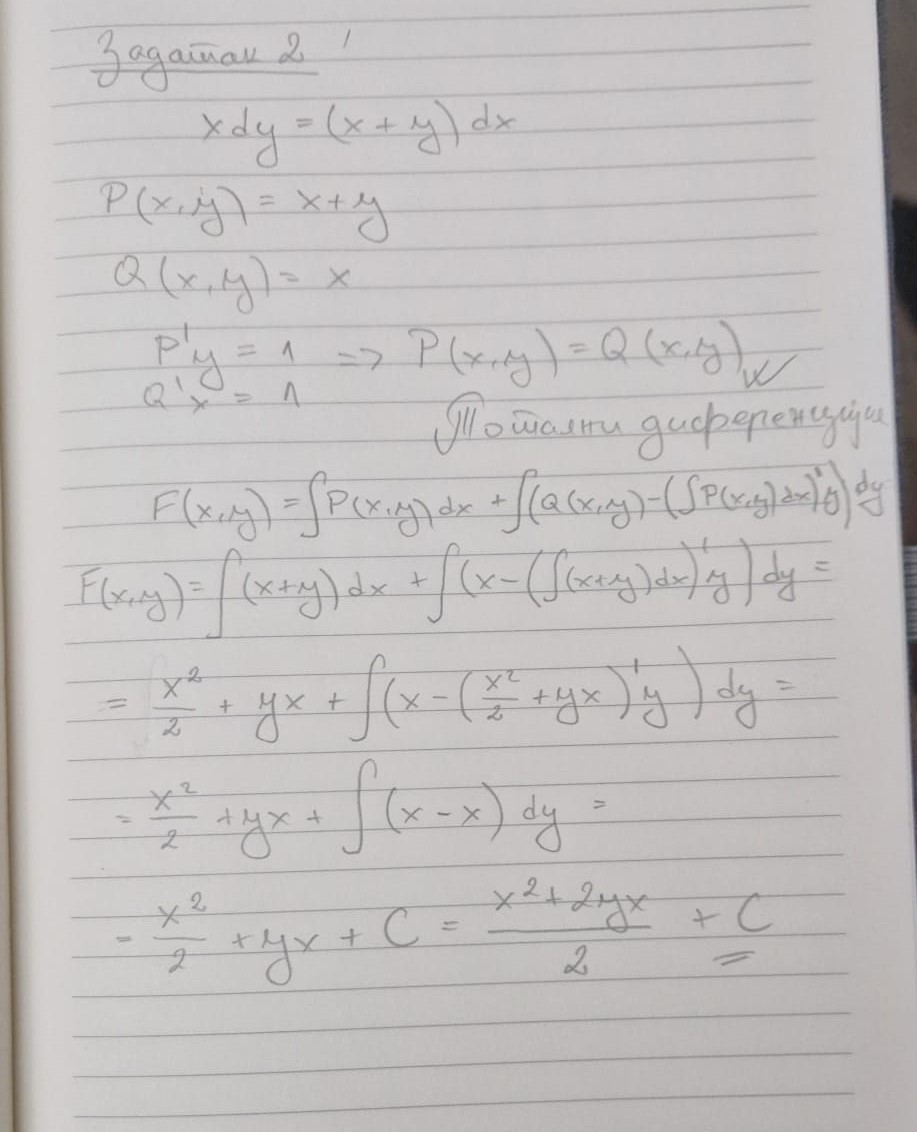 Задатак 2
x dy = (x + y) dx
P(x,y) = x+y
Q(x,y) = x
P'y = 1 => P(x,y) = Q(x,y)
Q'x = 1
Тотални диференцијал
F(x,y) = ∫P(x,y) dx + ∫(Q(x,y) - (∫P(x,y) dx)'y) dy
F(x,y) = ∫(x+y) dx + ∫(x - (∫(x+y) dx)'y) dy =
= x²/2 + yx + ∫(x - (x²/2 + yx)'y) dy =
= x²/2 + yx + ∫(x - x) dy =
= x²/2 + yx + C = (x² + 2yx)/2 + C